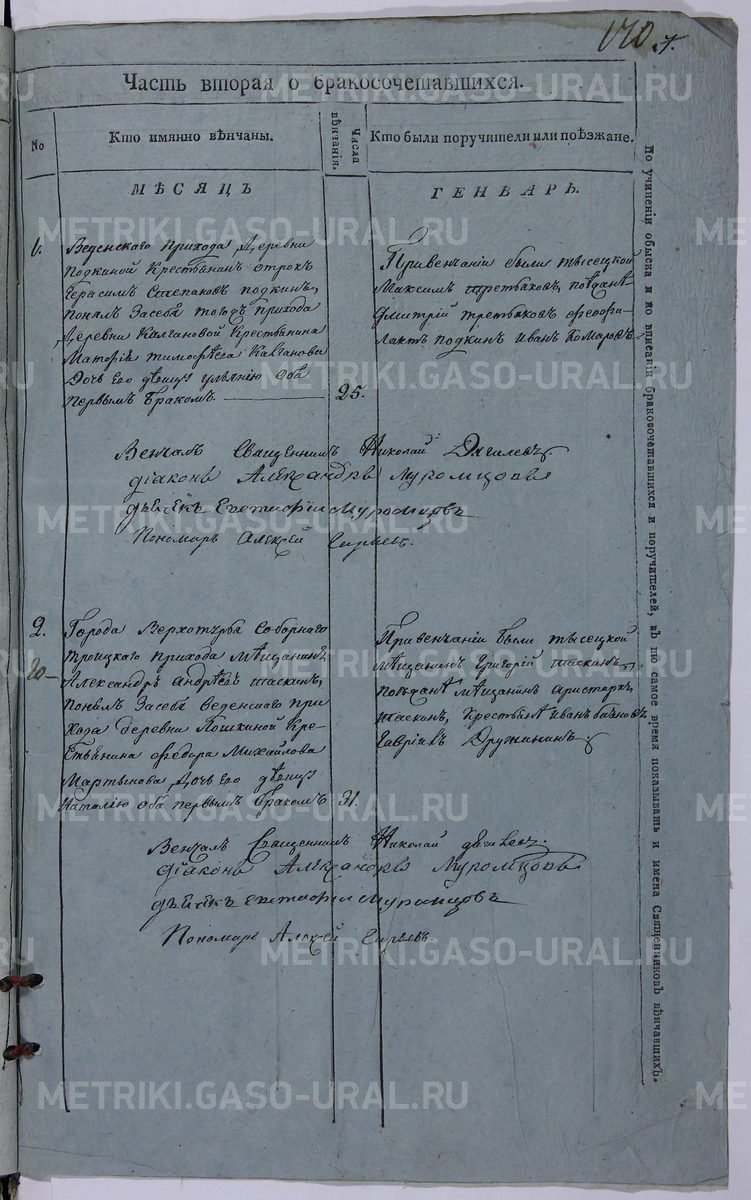 170.
Часть вторая о бракосочетавшихся.
No
Кто имянно вѣнчаны.
Числа вѣнчанія.
Кто были поручители или поѣзжане.
МѢСЯЦЪ
ГЕНВАРЬ.
1.
Веденскаго прихода, Деревни
подкиной Крестьянинъ отрокъ
Герасимъ Степановъ подкинъ,
понялъ Засебя тогожъ прихода
Деревни Калгановой Крестьянина
тимофѣева Калганова
Дочь его дѣвицу ульянію оба
первымъ бракомъ
25.
Привенчаніи были тысецкой
Максимъ третьяковъ, поѣздане
Дмитрий третьяковъ феофи-
лактъ подкинъ Иванъ Комаровъ
Венчалъ Священникъ Николай
діаконъ Александръ Муромцовъ
дьячекъ Евстафій Муромцовъ
Пономарь Алексей
2.
Города Верхотурья Соборнаго
троицкаго прихода мѣщанинъ
Александръ андрѣевъ таскинъ,
понялъ Засебя веденскаго при-
хода деревни Пошкиной Кре-
стьянина федора Михайлова
Мартынова, Дочь его дѣвицу
Наталію оба первымъ бракомъ
31.
Привенчаніи были тысецкой
мѣщанинъ григорій таскинъ,
поѣздане мѣщанинъ аристархъ
таскинъ, крестьяне иванъ
Гавріилъ Дружининъ
Венчалъ Священникъ Николай
діаконъ Александръ Муромцовъ
дьячекъ Евстафій Муромцовъ
Пономарь Алексей
По учиненіи обыска и по вписаніи бракосочетавшихся и поручителей, въ то самое время показывать и имена Священниковъ вѣнчавшихъ.
METRIKI.GASO-URAL.RU